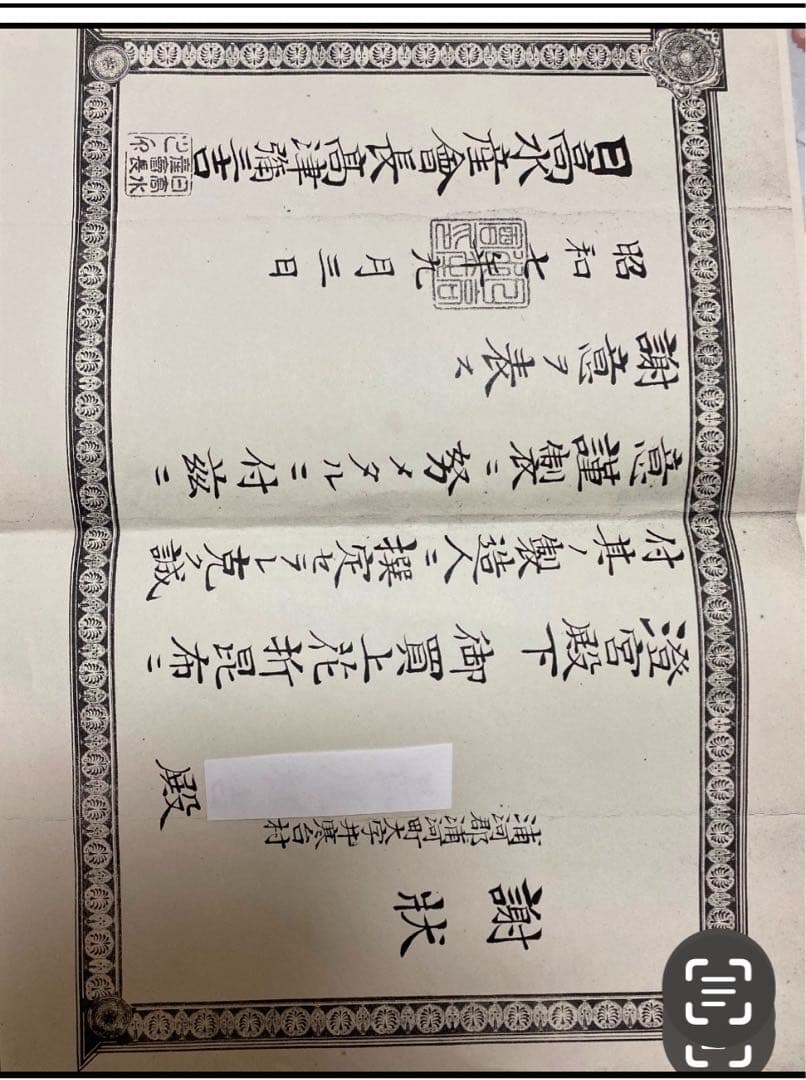 謝狀
浦河郡浦河町大字井寒台村
殿
澄宮殿下御買上花折昆布ニ
付其ノ製造人ニ撰定セラレ克ク誠
意謹製ニ努メタルニ付茲ニ
謝意ヲ表ス
昭和七年九月三日
日高水産會長高津彌三吉
日高水
産會長
之印